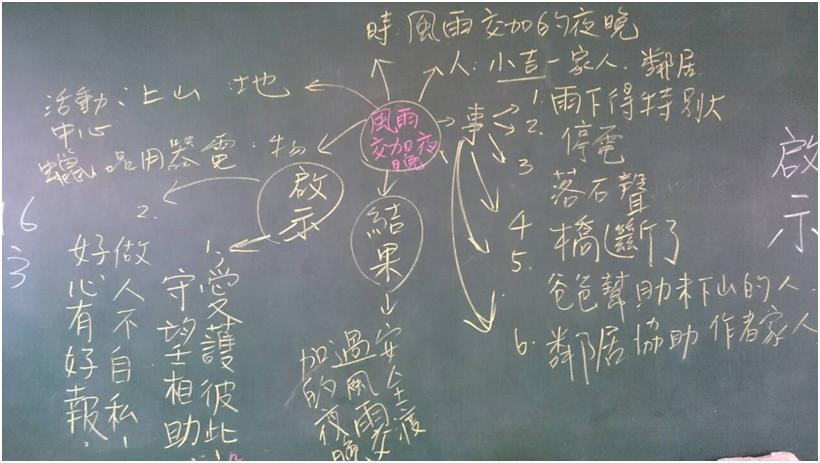 時:風雨交加的夜晚
人:小吉一家人.鄰居
地:山上
活動中心
物:電器用品
蠟
風雨
交加夜
晚
事
1.雨下得特別大
2.停電
3落石聲
4橋斷了
5.爸爸幫助未下山的人.
6.鄰居協助作者家人
結果
安全渡
過風雨交
加的夜晚
啟示
1.愛護彼此
守望相助
2.做人不自私,
好心有好報.
啟示
16
3